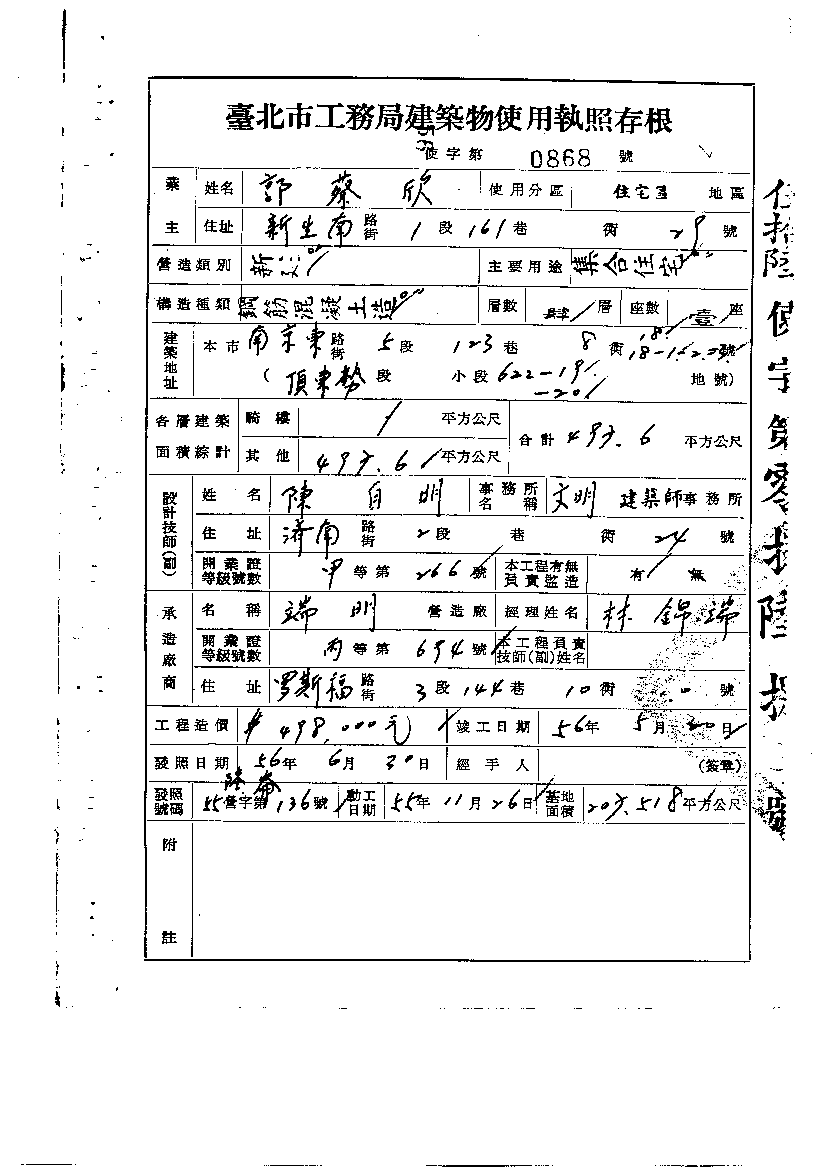 臺北市工務局建築物使用執照存根
56
使字第 0868 號
業主 姓名 郭蔡欣 使用分區 住宅區 地區
住址 新生南路街 1段 161巷 衖 29號
營造類別 新建 主要用途 集合住宅
構造種類 鋼筋混凝土造 層數 肆層 座數 壹座
建築地址 本市 南京東路街 5段 123巷 8衖 號
(頂東勢段 小段 622-19 地號)
-20
各層建築面積綜計 騎樓 / 平方公尺 合計 平方公尺
其他 平方公尺
設計技師(副) 姓名 陳自明 事務所名稱 文明 建築師事務所
住址 濟南路街 2段 巷 衖 24號
開業證等級號數 甲等第 266號 本工程有無負責監造 有 無
承造廠商 名稱 端明 營造廠 經理姓名 林錦端
開業證等級號數 丙等第 694號 本工程負責技師(副)姓名
住址 罗斯福路街 3段 144巷 10衖 號
工程造價 498,000元 竣工日期 56年 5月 30日
發照日期 56年 6月 30日 經手人 (簽章)
發照號碼 55營字第136號 動工日期 55年 11月 26日 基地面積 平方公尺
附註
伍拾陸使字第零捌陸捌號